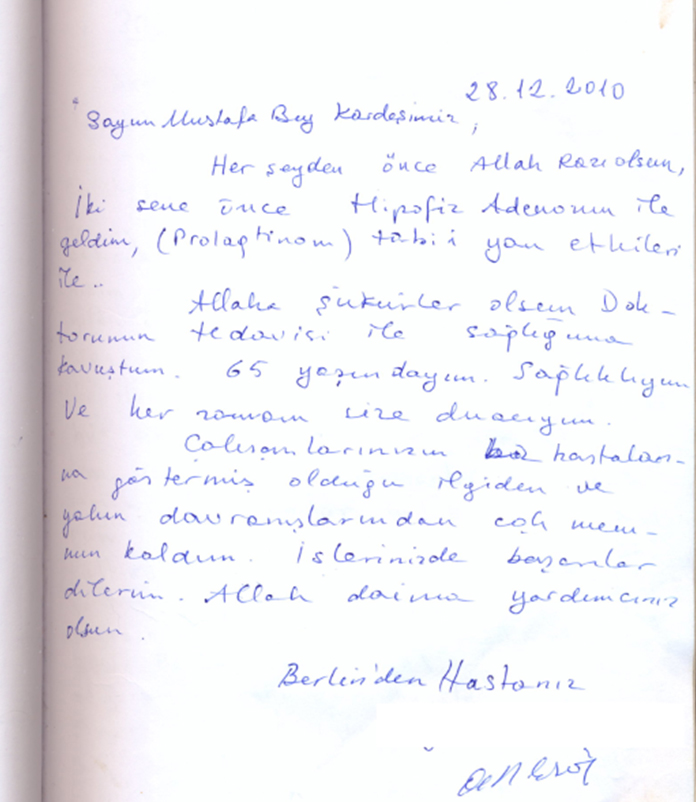 28.12.2010
"Sayın Mustafa Bey Kardeşimiz,
Her şeyden önce Allah Razı olsun,
İki sene önce Hipofiz Adenomu ile
geldim, (Prolaktinom) tabii yan etkileri
ile..
Allaha şükürler olsun Dok-
torumun tedavisi ile sağlığıma
kavuştum. 65 yaşındayım. Sağlıklıyım
Ve her zaman size duacıyım.
Çalışanlarınızın hastaları-
na göstermiş olduğu ilgiden ve
yakın davranışlarından çok mem-
nun kaldım. İşlerinizde başarılar
dilerim. Allah daima yardımcınız
olsun.
Berlin'den Hastanız